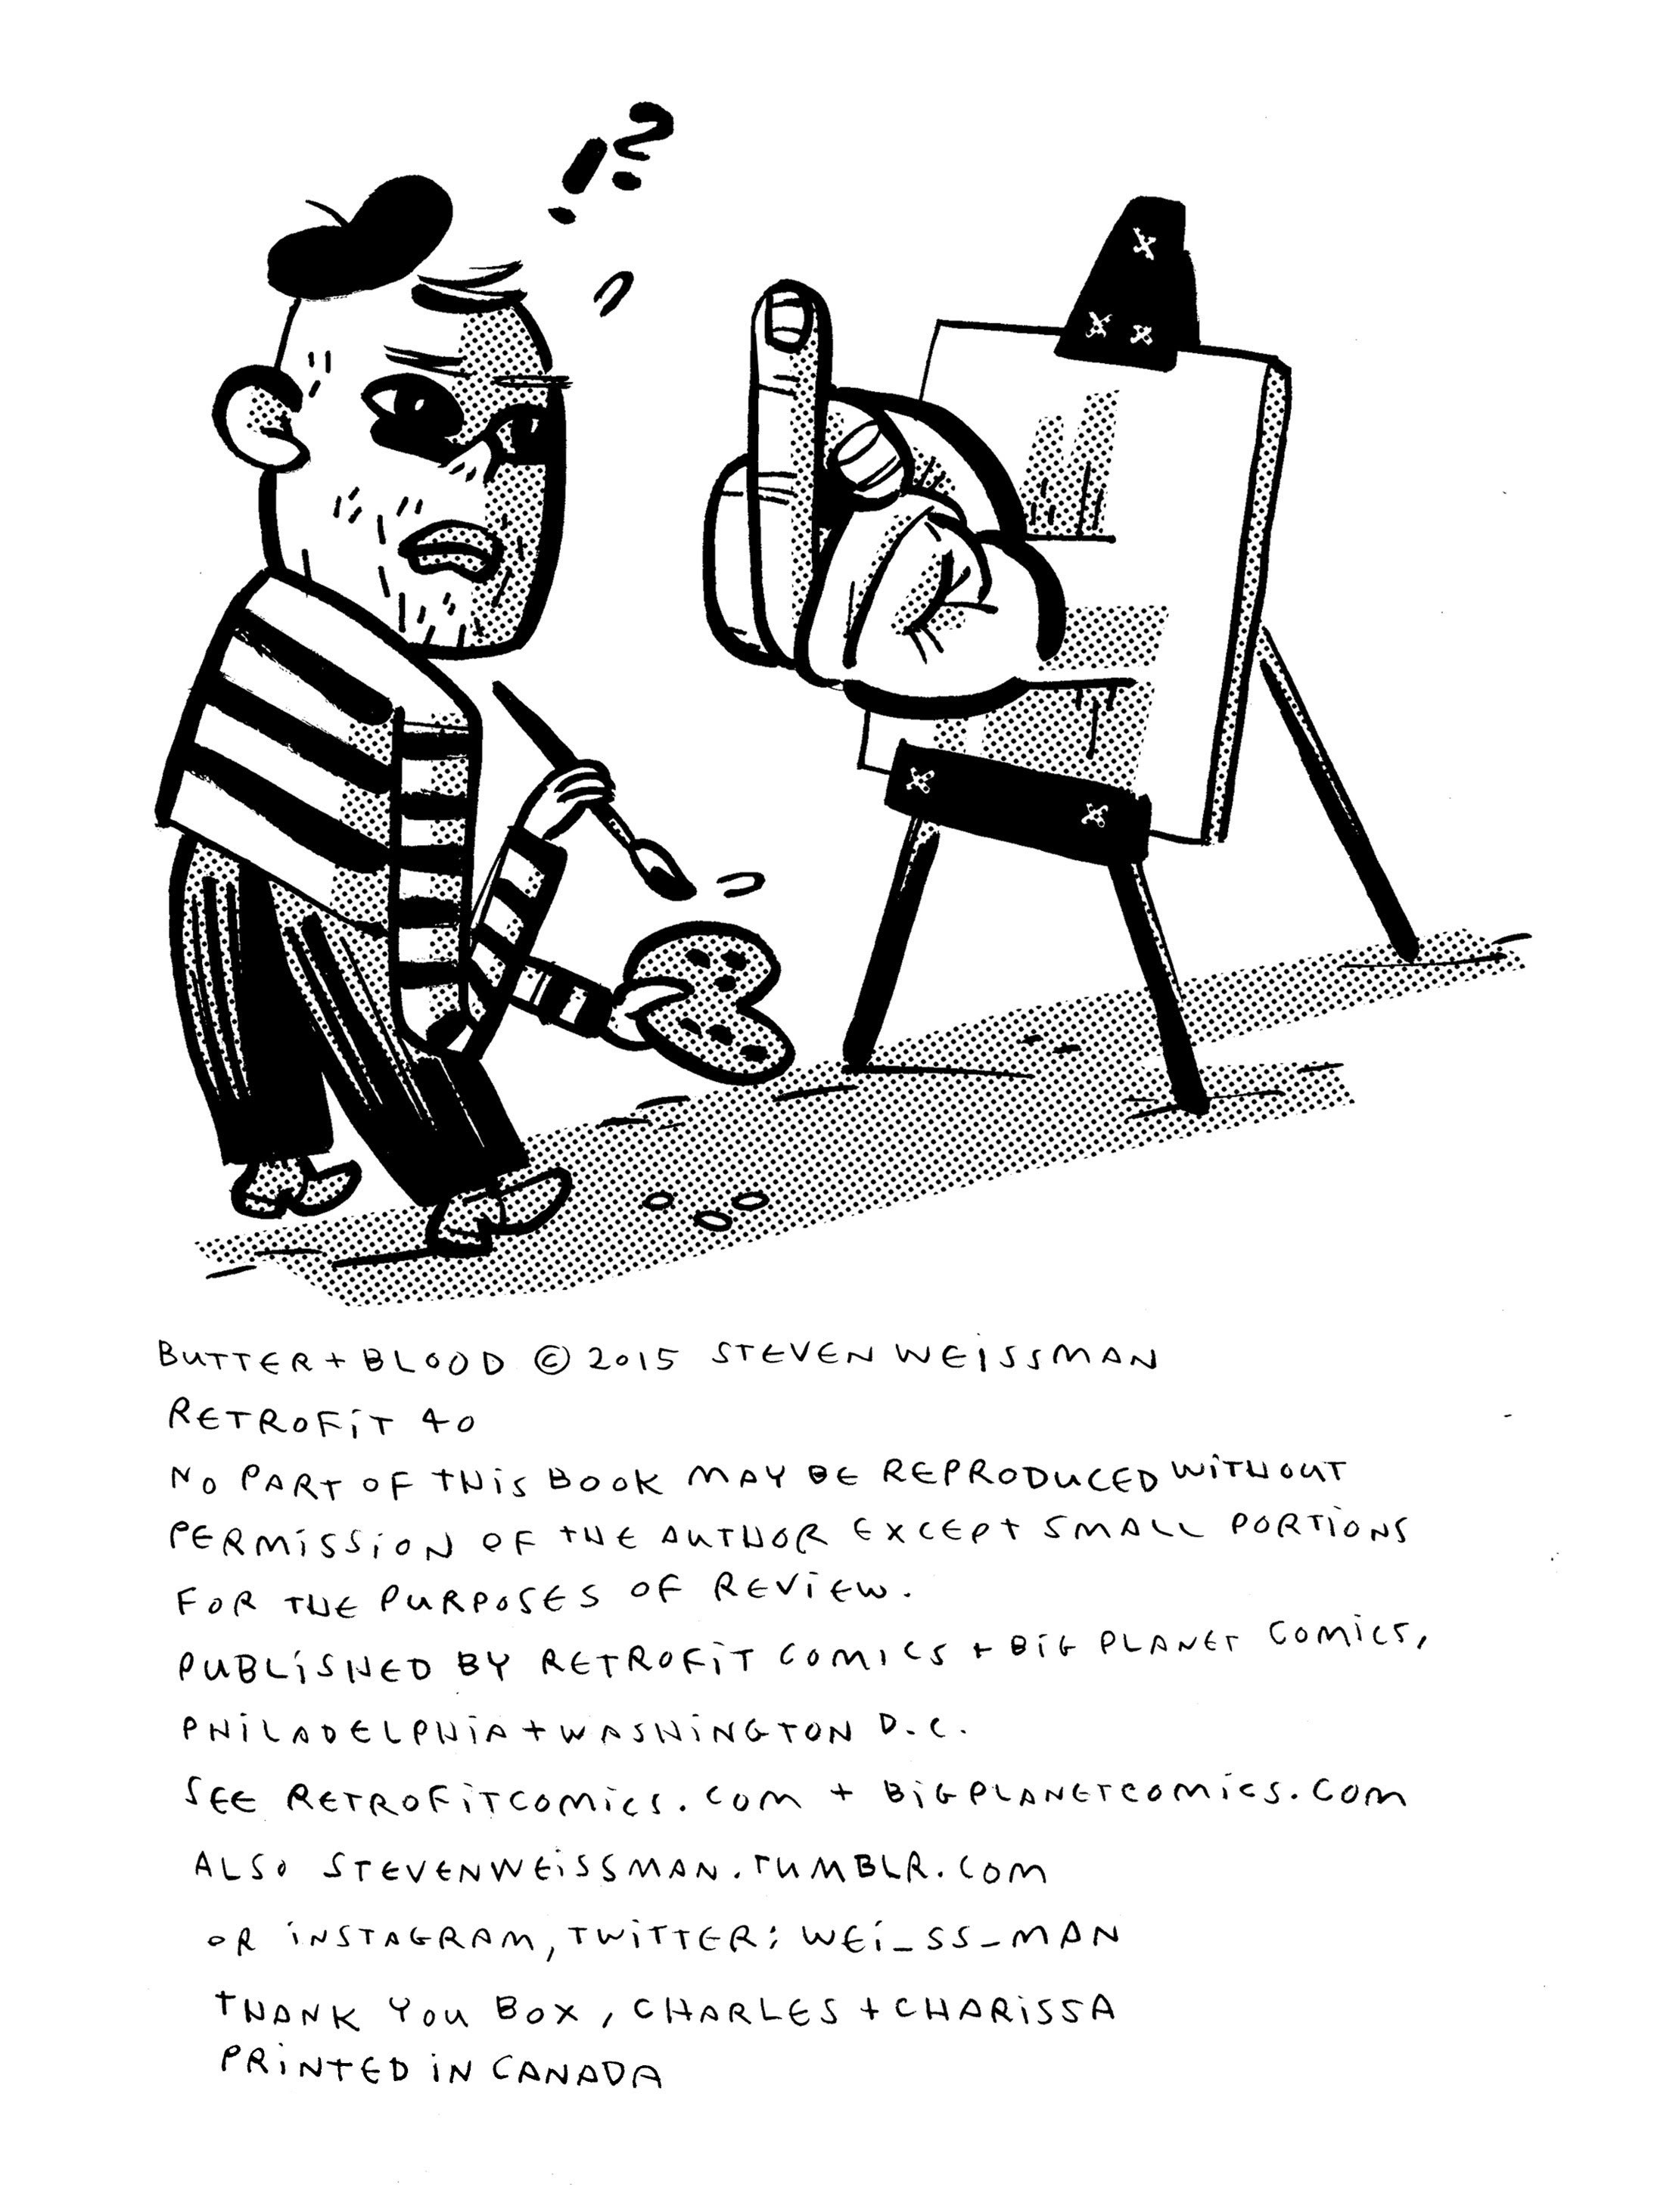 !?
BUTTER + BLOOD © 2015 STEVEN WEISSMAN
RETROFIT 40
NO PART OF THIS BOOK MAY BE REPRODUCED WITHOUT
PERMISSION OF THE AUTHOR EXCEPT SMALL PORTIONS
FOR THE PURPOSES OF REVIEW.
PUBLISHED BY RETROFIT COMICS + BIG PLANET COMICS,
PHILADELPHIA + WASHINGTON D.C.
SEE RETROFITCOMICS.COM + BIGPLANETCOMICS.COM
ALSO STEVENWEISSMAN.TUMBLR.COM
OR INSTAGRAM, TWITTER: WEI_SS_MAN
THANK YOU BOX, CHARLES + CHARISSA
PRINTED IN CANADA